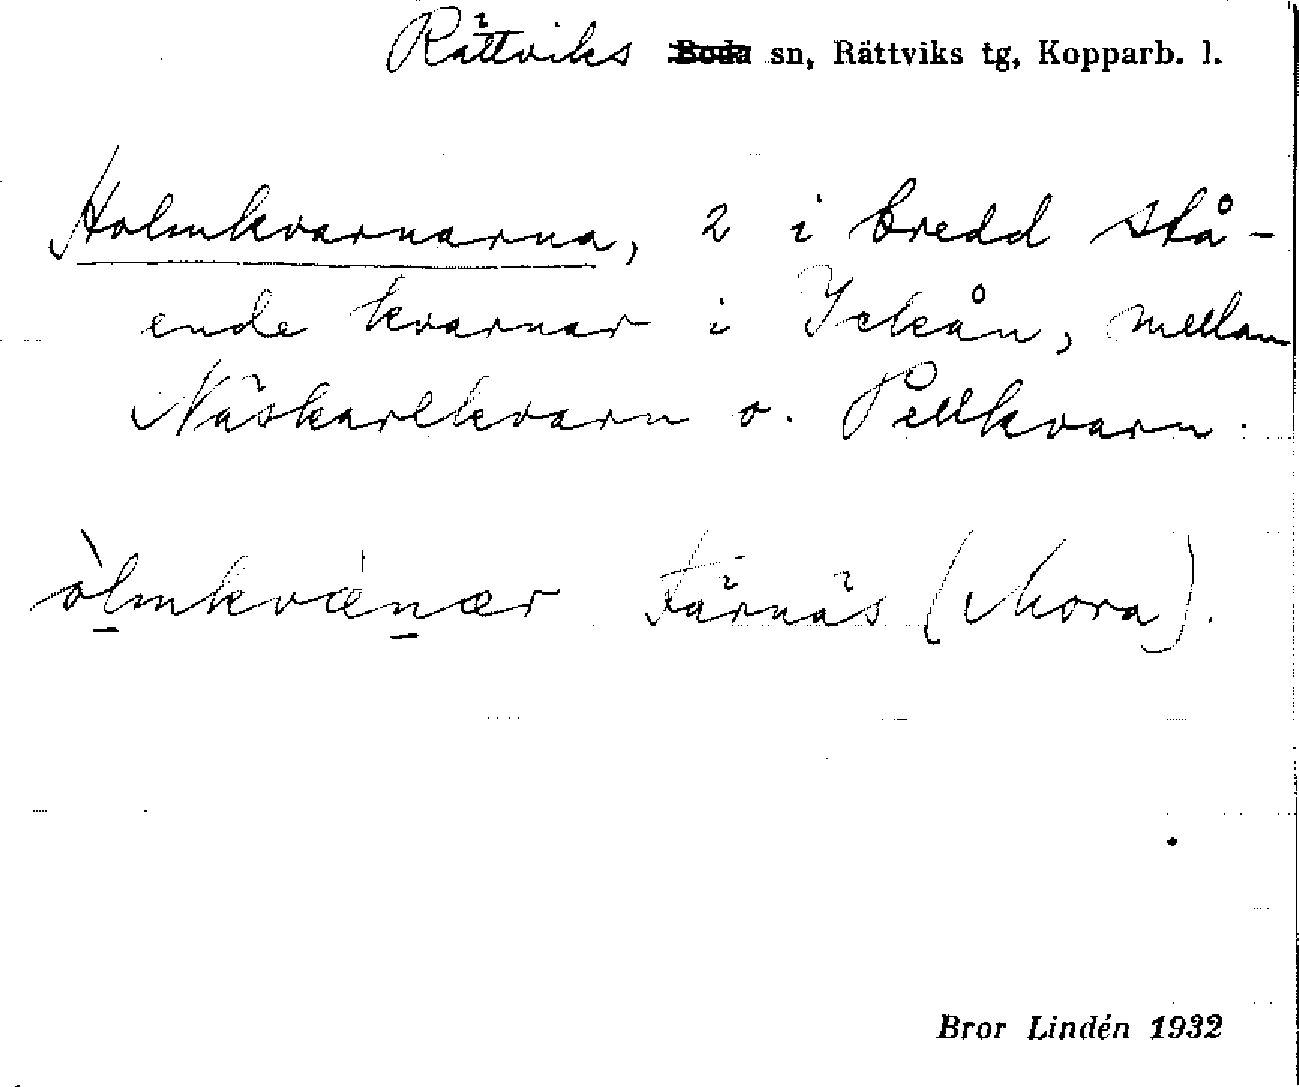 Rättviks Boda sn, Rättviks tg, Kopparb. l.
Holmkvarnarna, 2 i bredd stå-
ende kvarnar i Ickån, mellan
Näskarlkvarn o. Pellkvarn.
òlmkvænær Färnäs (Mora).
Bror Lindén 1932